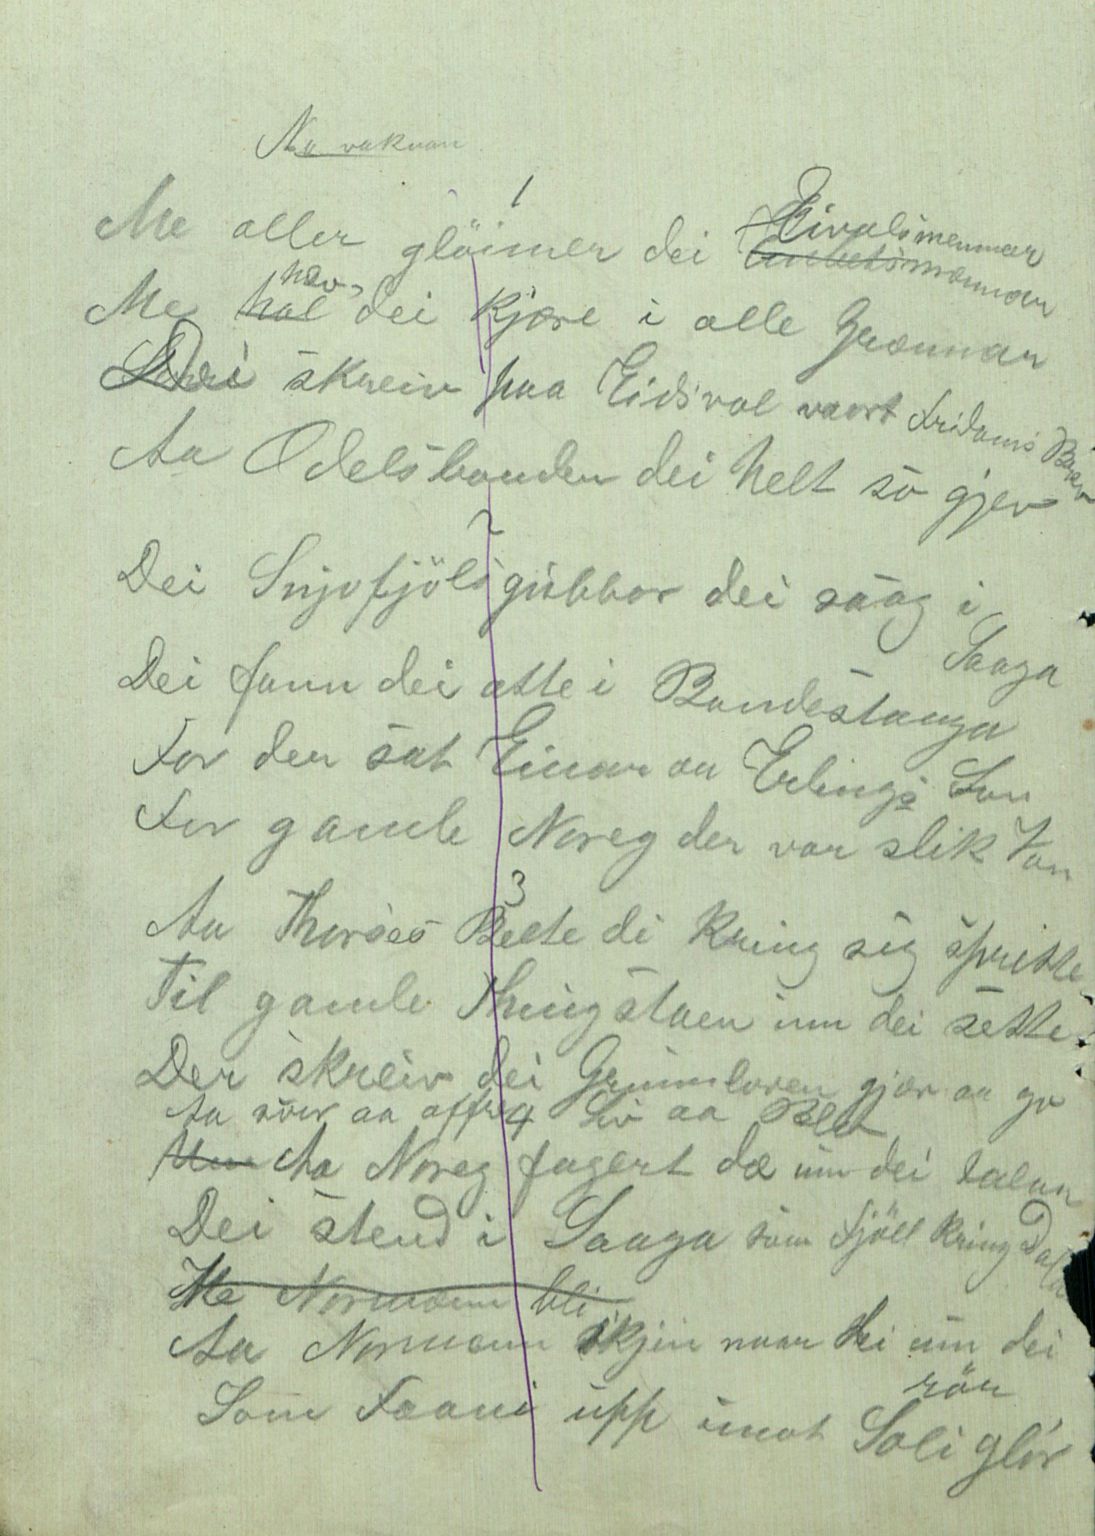 Me aller glöimer dei Eivalsmennar
Me hev dei kjære i alle Grænnar
Dei skreiv paa Eidsval vaart Fridoms Brev
Aa Odelsbonden dei helt so gjev
2
Dei Snjofjölsgubbor dei sååg i
Saaga
Dei fann dei atte i Bondestaaga
For der sat Einar aa Erlings Son
For gamle Noreg der var slik Von
3
Aa Thorses Belte di kring sig spritte
Til gamle Thingstaen inn dei sette
Der skreiv dei Grunnloven gjæv aa go
Aa svor aa offre Liv aa Blod
4
Aa Noreg fagert dæ um dei talar
Dei stend i Saaga som Fjöll kring Dalar
Me Normænn bli
Aa Normænn skjin naar dei um dei
rör
Som Faani upp imot Soli glör